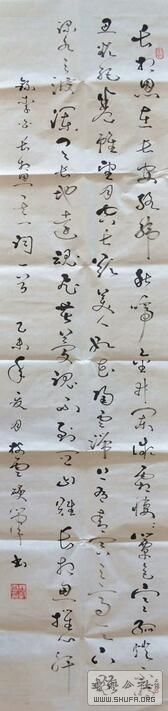 长相思在长安络纬秋啼金井阑微霜凄凄簟色寒孤灯不明
思欲绝卷帷望月空长叹美人如花隔云端上有青冥之高天下有
渌水之波澜天长地远魂飞苦梦魂不到关山难长相思摧心肝
录李白长相思 一首 乙未年夏月 书
WWW.SHUFA.ORG